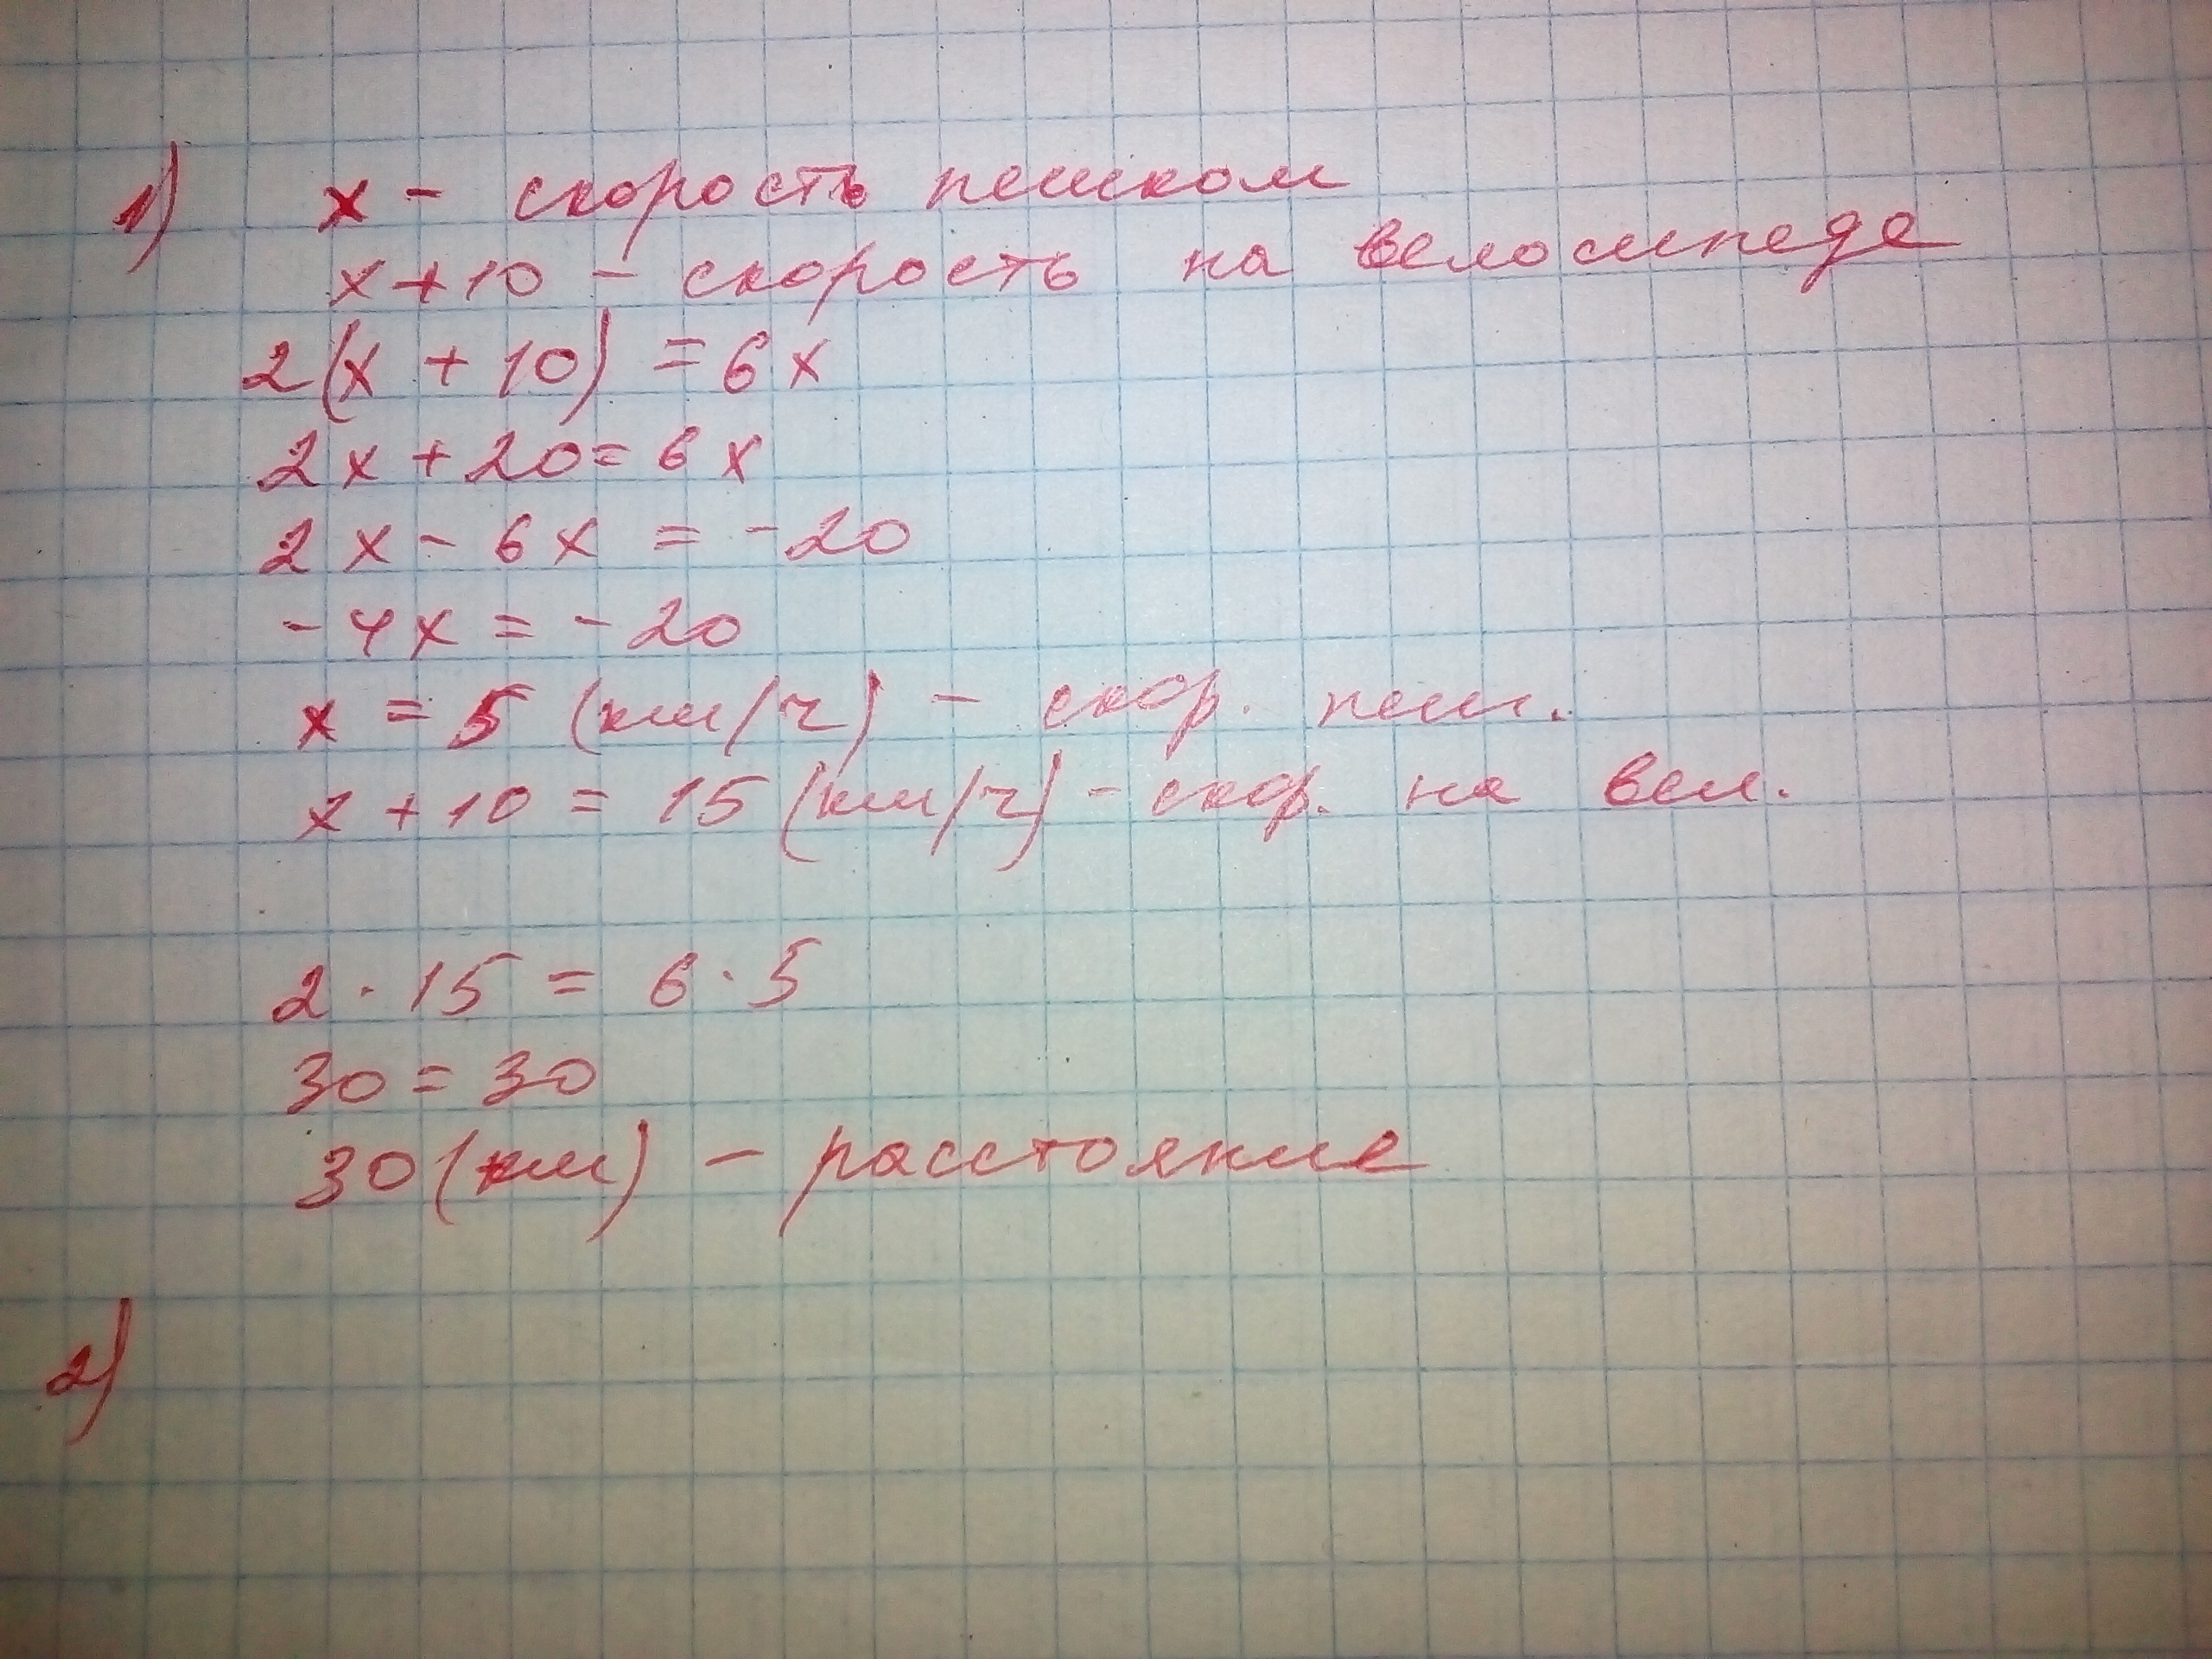 1) x - скорость пешком
x + 10 - скорость на велосипеде
2(x + 10) = 6x
2x + 20 = 6x
2x - 6x = -20
-4x = -20
x = 5 (км/ч) - скор. пеш.
x + 10 = 15 (км/ч) - скор. на вел.
2 · 15 = 6 · 5
30 = 30
30 (км) - расстояние
2)